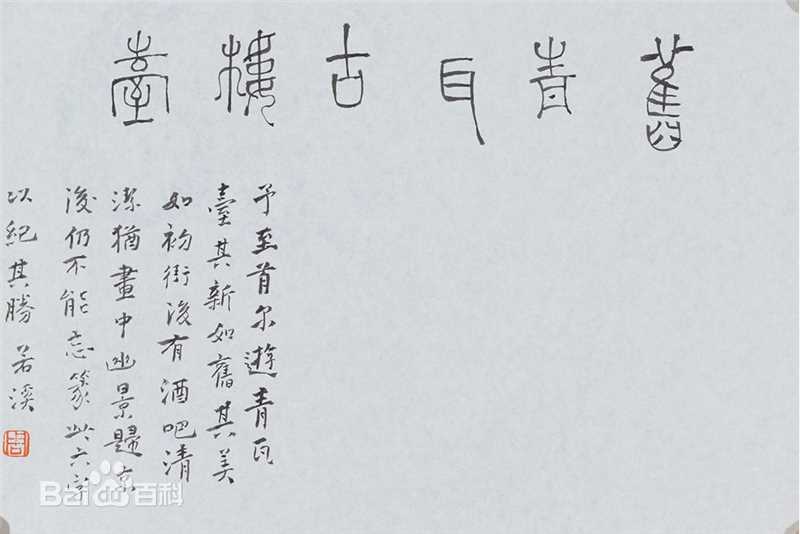 舊青瓦古樓臺
予至首尔遊青瓦
臺其新如舊其美
如初街後有酒吧清
潔猶畫中幽景歸京
後仍不能忘篆此六字
以紀其勝 若溪
Bai百科